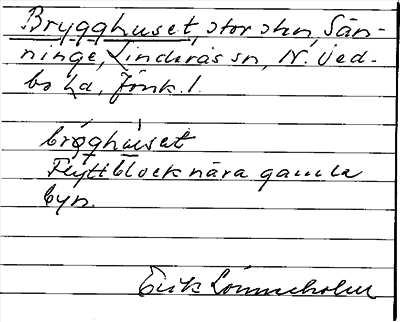 Brygghuset, stor sten, Sän-
ninge, Linderås sn, N. Ved-
bo hd, Jönk. l.
brøghuset
Flyttblock nära gamla
byn.
Erik Lönneholm